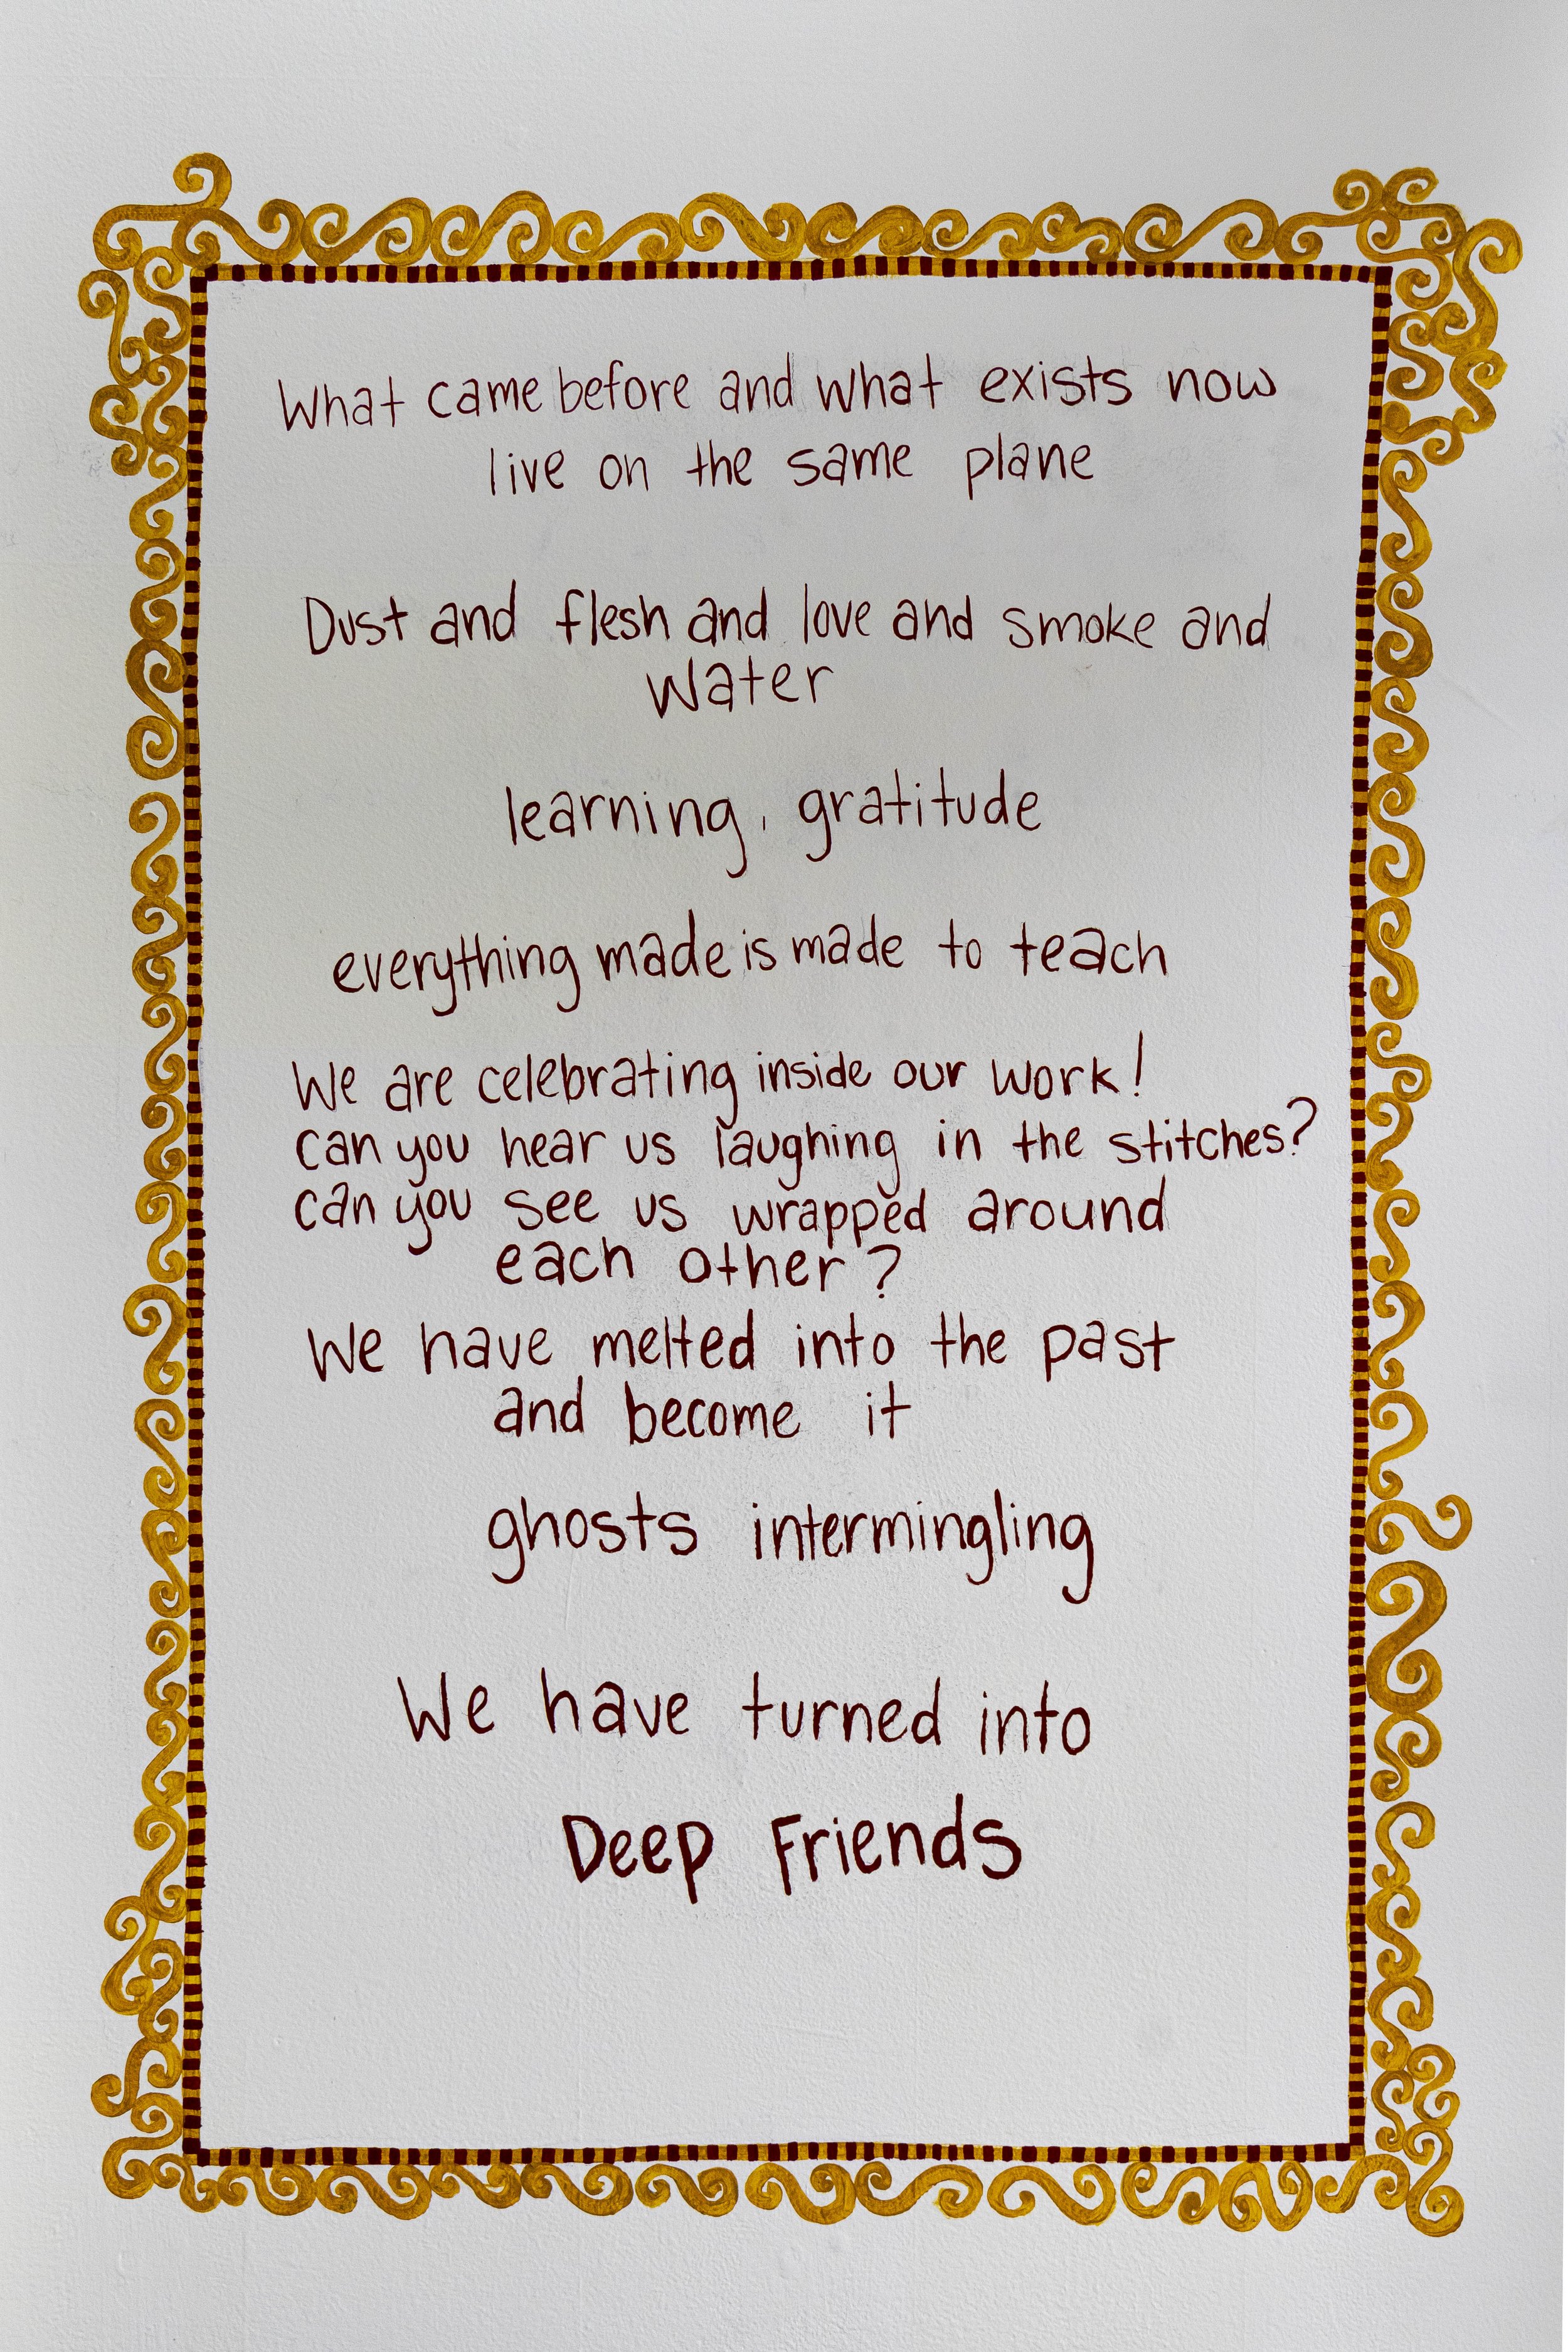 What came before and what exists now
live on the same plane
Dust and flesh and love and smoke and
water
learning, gratitude
everything made is made to teach
We are celebrating inside our work!
can you hear us laughing in the stitches?
can you see us wrapped around
each other?
We have melted into the past
and become it
ghosts intermingling
We have turned into
Deep Friends